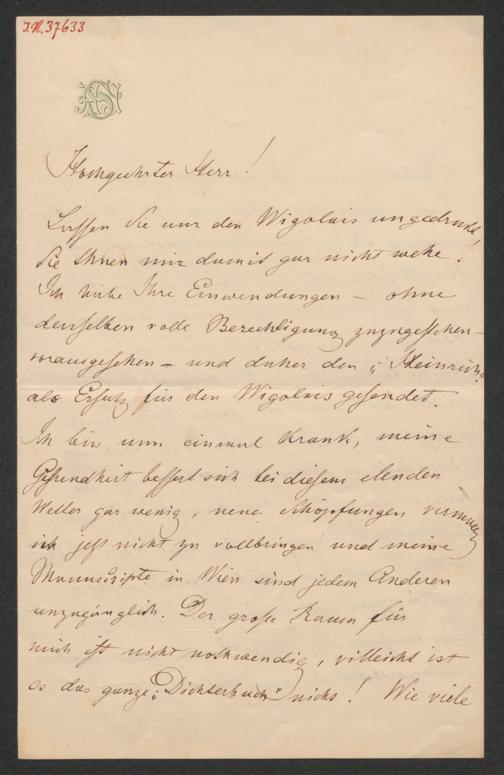 I.N. 37633
Hochgeehrter Herr!
Lassen Sie nur den Wigolais ungedruckt,
Sie thuen mir damit gar nicht wehe.
Ich habe Ihre Einwendungen – ohne
denselben volle Berechtigung zuzugestehen –
vorausgesehen – und daher den „Heinrich"
als Ersatz für den Wigolais gesendet.
Ich bin nun einmal krank, meine
Gesundheit bessert sich bei diesem elenden
Wetter gar wenig, neue Schöpfungen vermag
ich jetzt nicht zu vollbringen und meine
Manuscripte in Wien sind jedem Anderen
unzugänglich. Der große Raum für
mich ist nicht nothwendig, villeicht ist
es das ganze „Dichterbuch" nicht! Wie viele